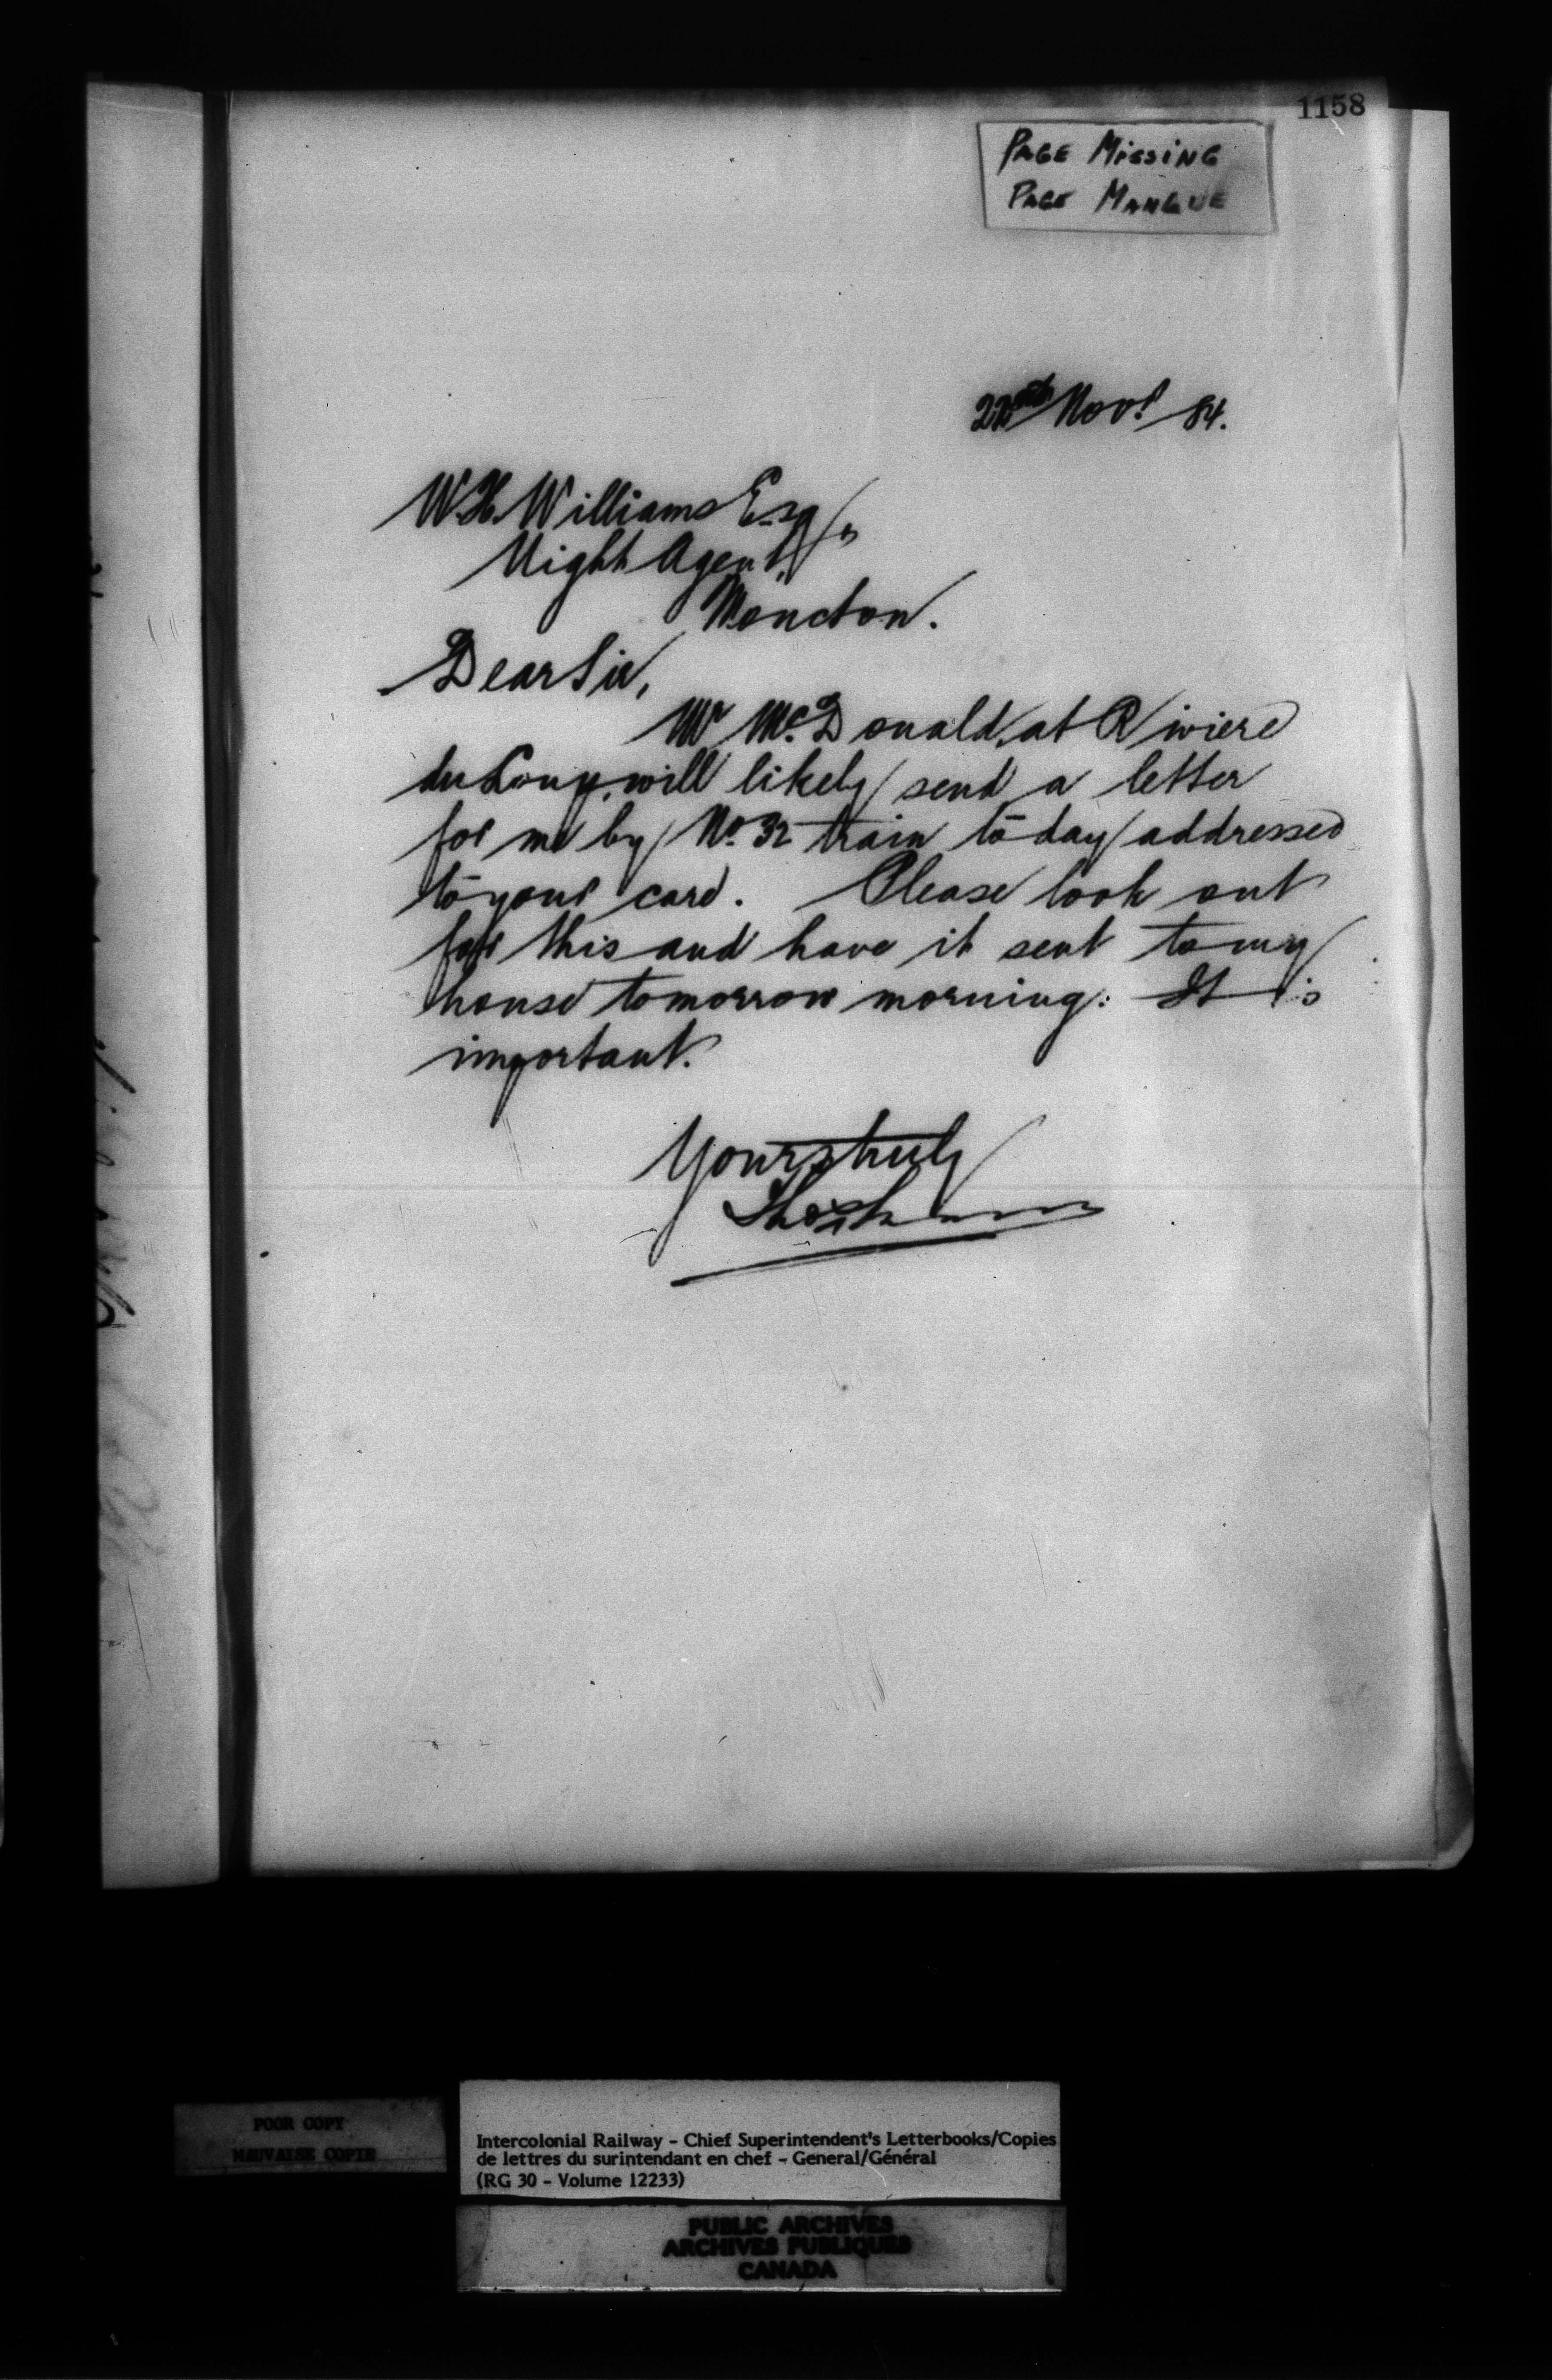 1158
PAGE MISSING
PAGE MANQUE
22nd Novr 84.
W.H. Williams Esq
Night Agent,
Moncton.
Dear Sir,
Mr McDonald, at Riviere
du Loup, will likely send a letter
for me by No. 32 train to day addressed
to your care. Please look out
for this and have it sent to my
house tomorrow morning. It is
important.
Yours truly
POOR COPY
MAUVAISE COPIE
Intercolonial Railway - Chief Superintendent's Letterbooks/Copies
de lettres du surintendant en chef - General/Général
(RG 30 - Volume 12233)
PUBLIC ARCHIVES
ARCHIVES PUBLIQUES
CANADA